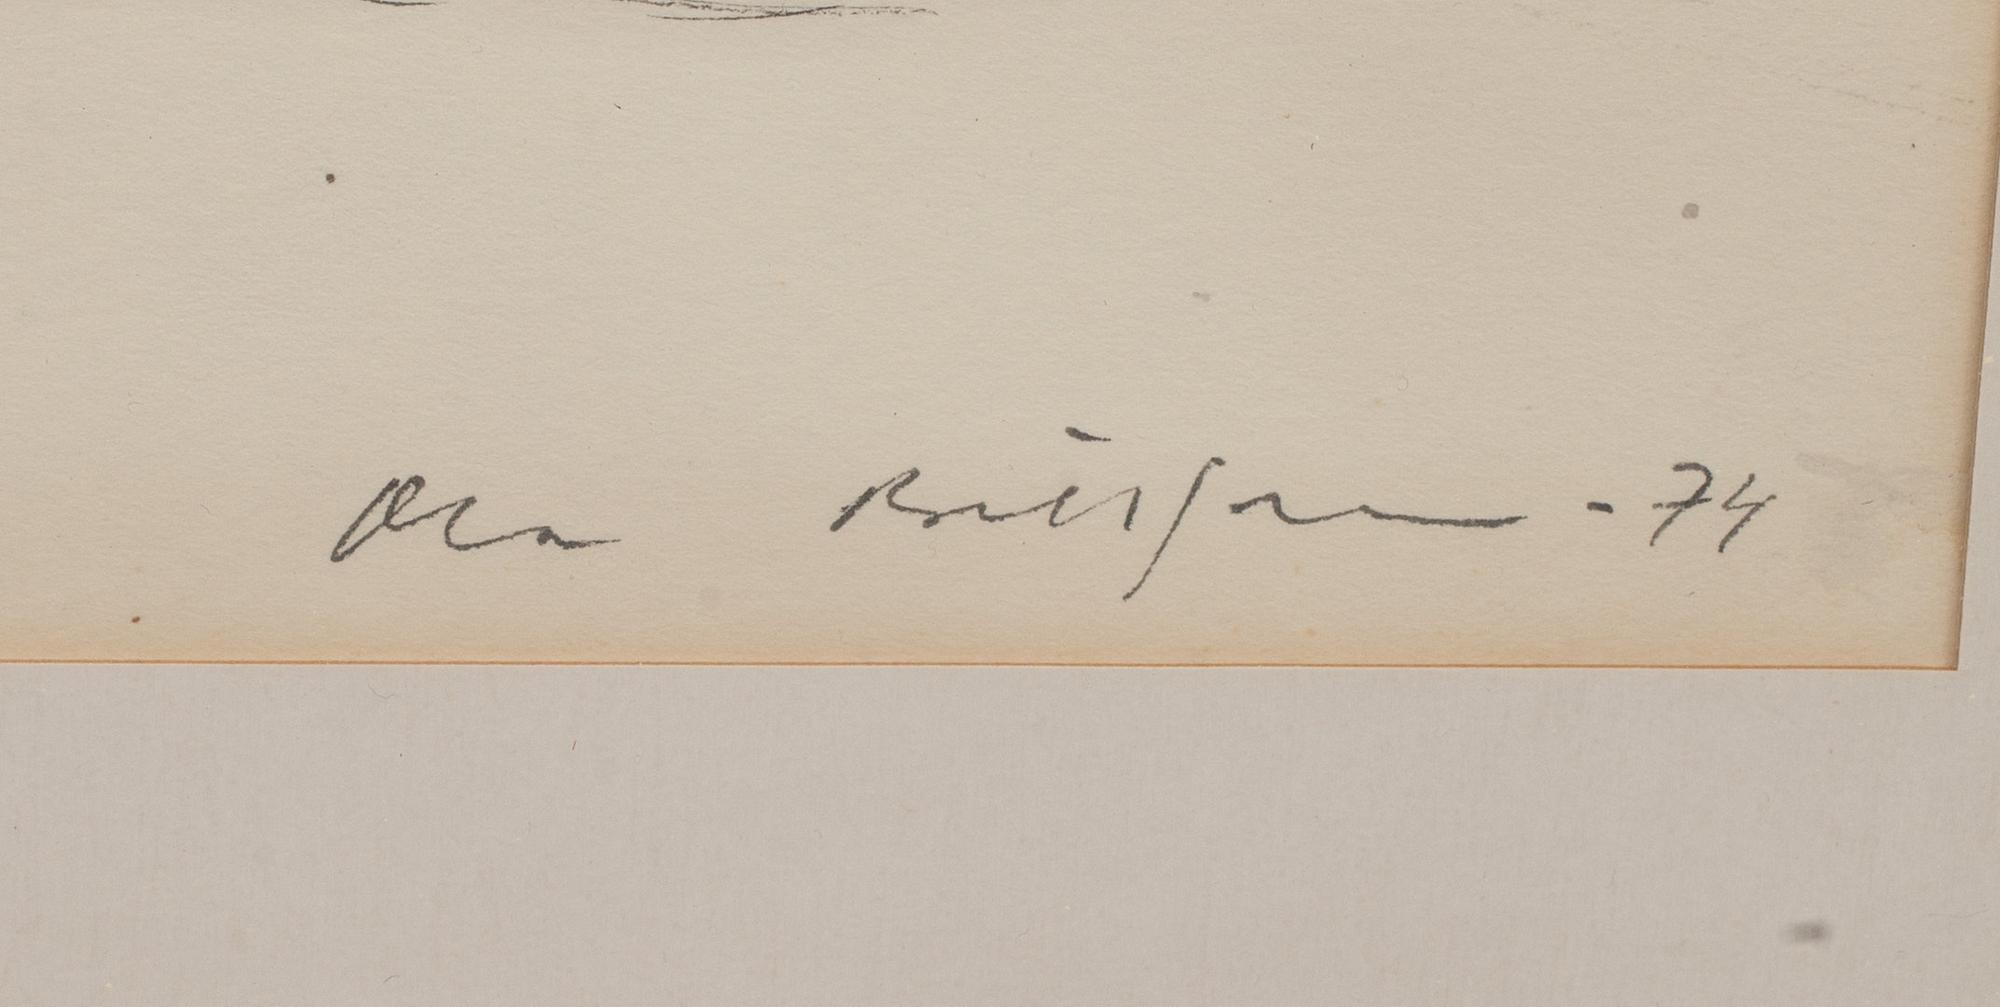 Ola Billgren -74